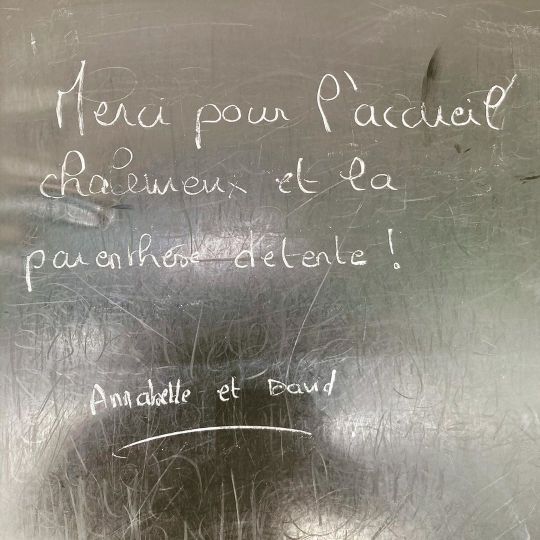 Merci pour l'accueil
chaleureux et la
parenthèse détente !
Annabelle et David